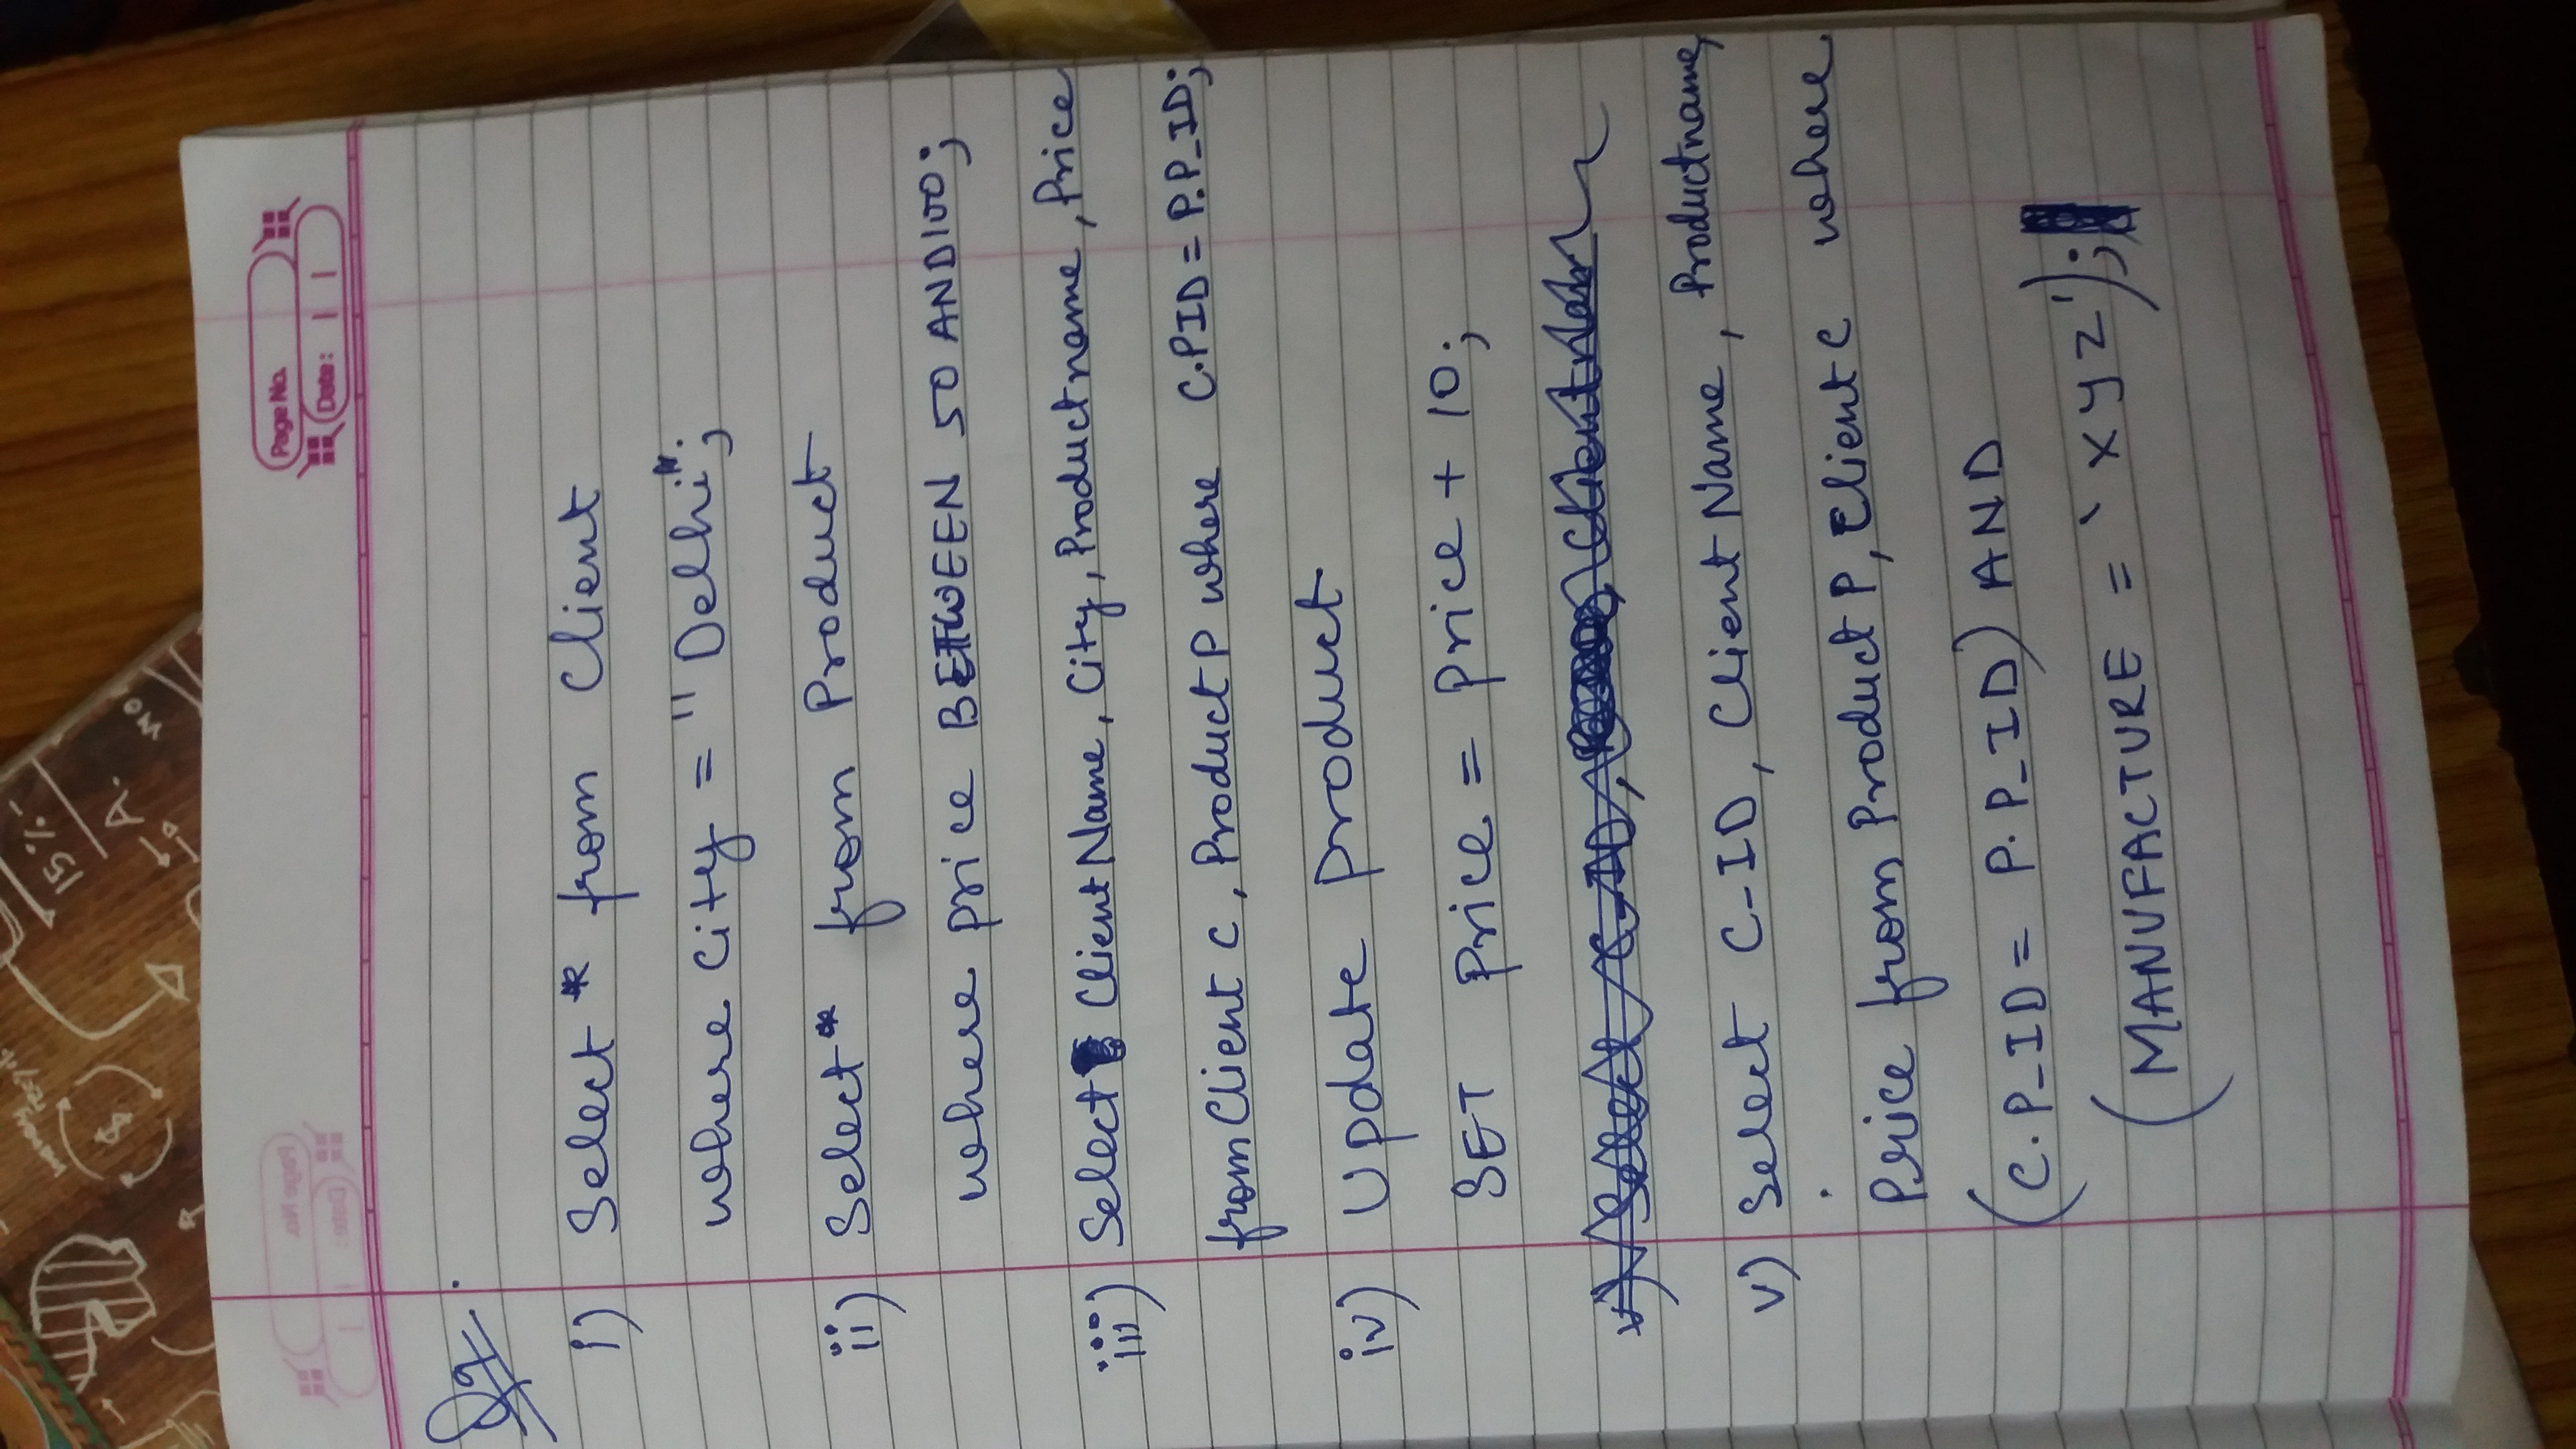 money
recycle
$
15%
A.
Page No.
Date:
Page No.
Date:
Q9.
i) Select * from Client
where City = "Delhi";
ii) Select * from Product
where price BETWEEN 50 AND 100;
iii) Select Client Name, City, Productname, Price
from Client C, Product P where C.PID = P.P_ID;
iv) Update product
SET price = price + 10;
v) Select C-ID, Clientnam
v) Select C-ID, Client Name, Productname,
Price from Product P, Client C where
(C.P_ID = P.P_ID) AND
(MANUFACTURE = 'xyz');